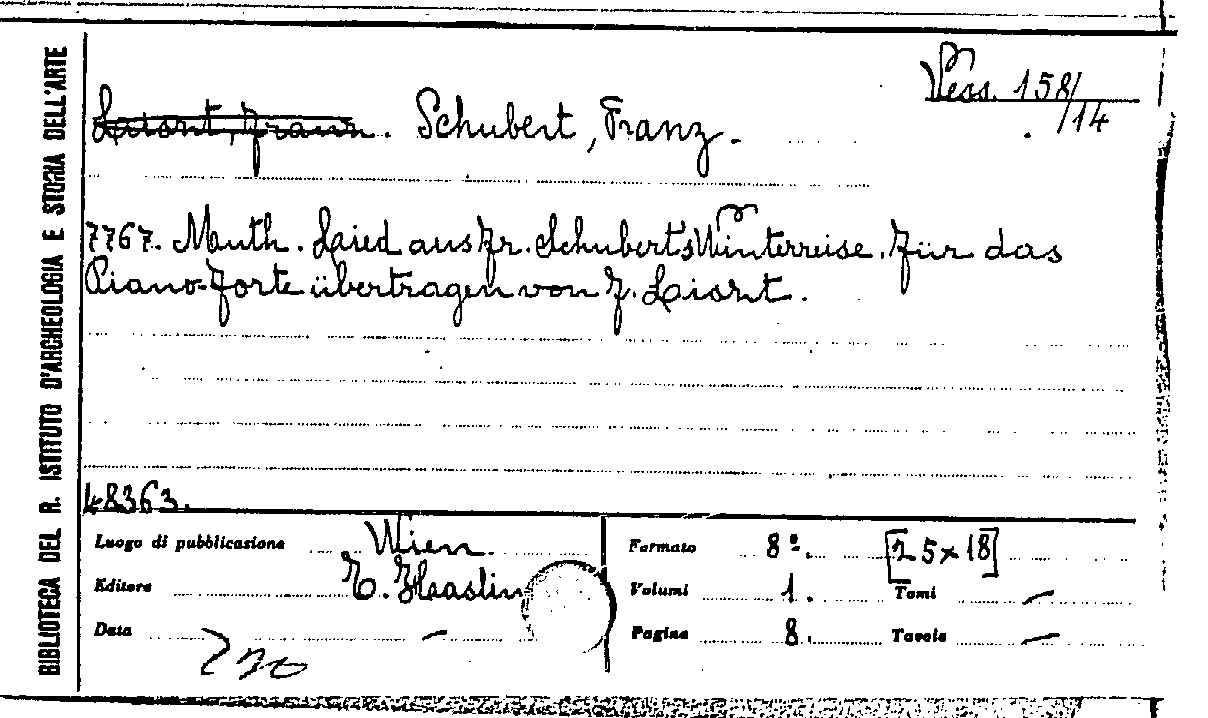 BIBLIOTECA DEL R. ISTITUTO D'ARCHEOLOGIA E STORIA DELL'ARTE
Vess. 158/
/14
Schubert, Franz.
7767. Muth. Laied aus Fr. Schubert's Winterreise. Für das
Piano-forte übertragen von F. Liszt.
48363.
Luogo di pubblicazione Wien.
Editore
Data —
Formato 8º. [25×18]
Volumi 1. Tomi —
Pagine 8. Tavole —